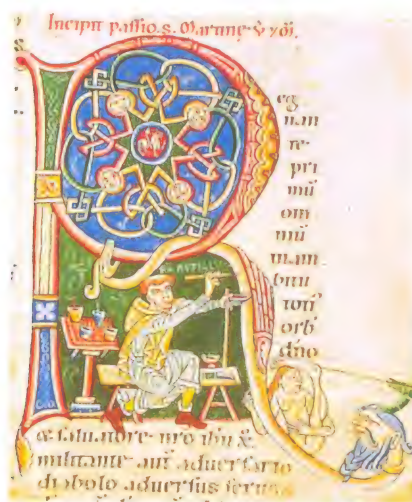 Incipit passio. s. Martine.
R
eg
nan
te
pri
mū
om
niū
bitū
toti
orb
dño
FR RVFILL
& saluatore nro ihu x̄
militante aut aduersario
diabolo aduersus seruos